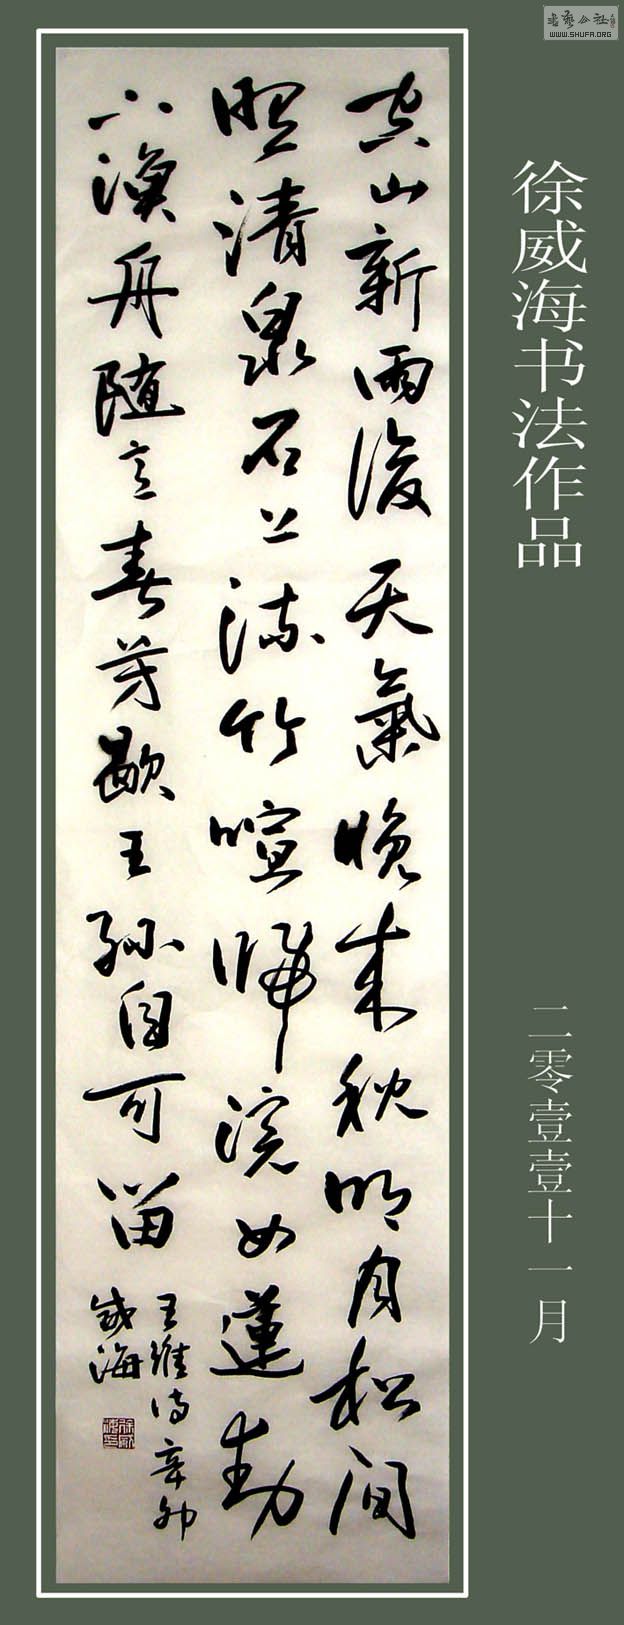 空山新雨後天氣晚來秋明月松間
照清泉石上流竹喧歸浣女蓮動
下漁舟隨意春芳歇王孫自可留
王維詩辛卯
威海
徐威海书法作品
二零壹壹十一月
书艺公社
WWW.SHUFA.ORG